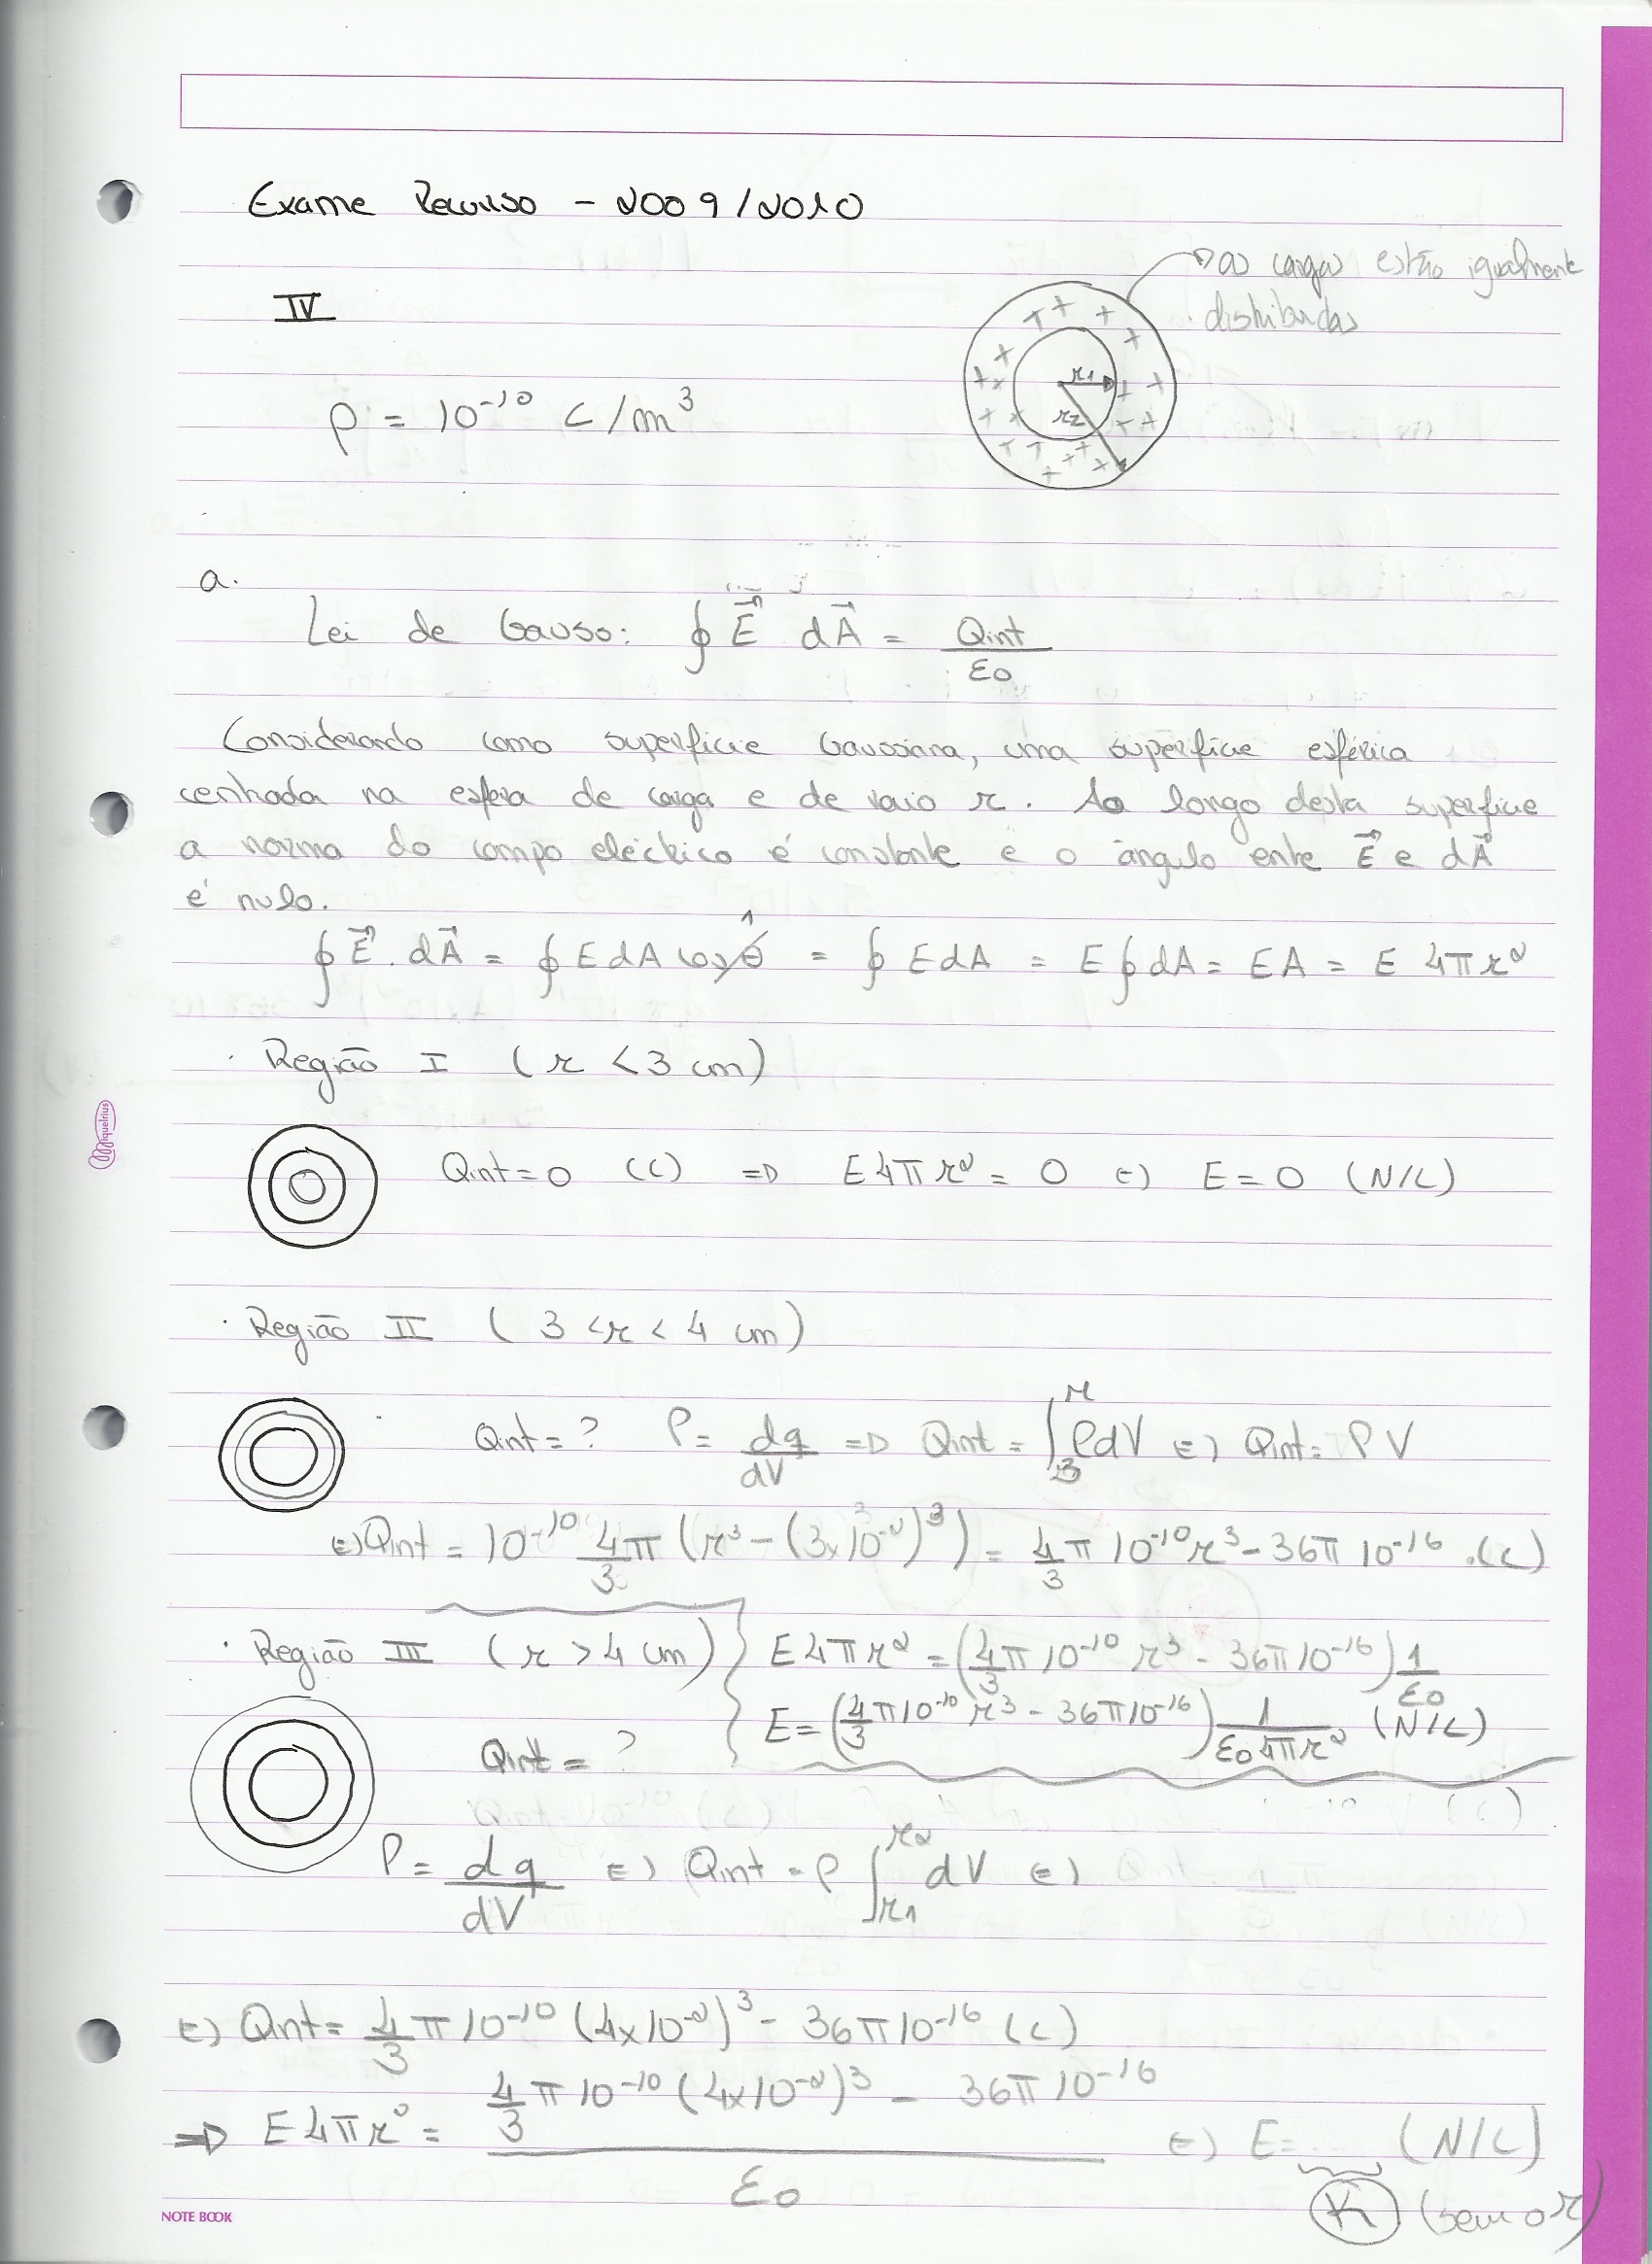 Exame Recurso - 2009/2010
→ as cargas estão igualmente
distribuidas
IV
r1
r2
ρ = 10⁻¹⁰ C/m³
a.
Lei de Gauss: ∮ E⃗ dA⃗ = Qint/ε0
Considerando como superficie Gaussiana, uma superficie esférica
centrada na esfera de carga e de raio r. Ao longo desta superficie
a norma do campo eléctrico é constante e o ângulo entre E⃗ e dA⃗
é nulo.
∮ E⃗ . dA⃗ = ∮ E dA cos θ 1 = ∮ E dA = E ∮ dA = EA = E 4π r²
· Região I (r < 3 cm)
Qint = 0 (C) ⇒ E 4π r² = 0 ⇔ E = 0 (N/C)
· Região II (3 < r < 4 cm)
Qint = ? ρ = dq/dV ⇒ Qint = ∫₃ʳ ρ dV ⇔ Qint = ρ V
⇔ Qint = 10⁻¹⁰ 4/3 π (r³ - (3×10⁻²)³) = 4/3 π 10⁻¹⁰ r³ - 36π 10⁻¹⁶ . (C)
· Região III (r > 4 cm)
E 4π r² = (4/3 π 10⁻¹⁰ r³ - 36π 10⁻¹⁶) 1/ε0
E = (4/3 π 10⁻¹⁰ r³ - 36π 10⁻¹⁶) 1/(ε0 4π r²) (N/C)
Qint = ?
ρ = dq/dV ⇔ Qint = ρ ∫ᵣ₁ʳ² dV ⇔
⇔ Qint = 4/3 π 10⁻¹⁰ (4×10⁻²)³ - 36π 10⁻¹⁶ (C)
⇒ E 4π r² = (4/3 π 10⁻¹⁰ (4×10⁻²)³ - 36π 10⁻¹⁶)/ε0 ⇔ E = ... (N/C)
K (sem o r)
Miquelrius
NOTE BOOK